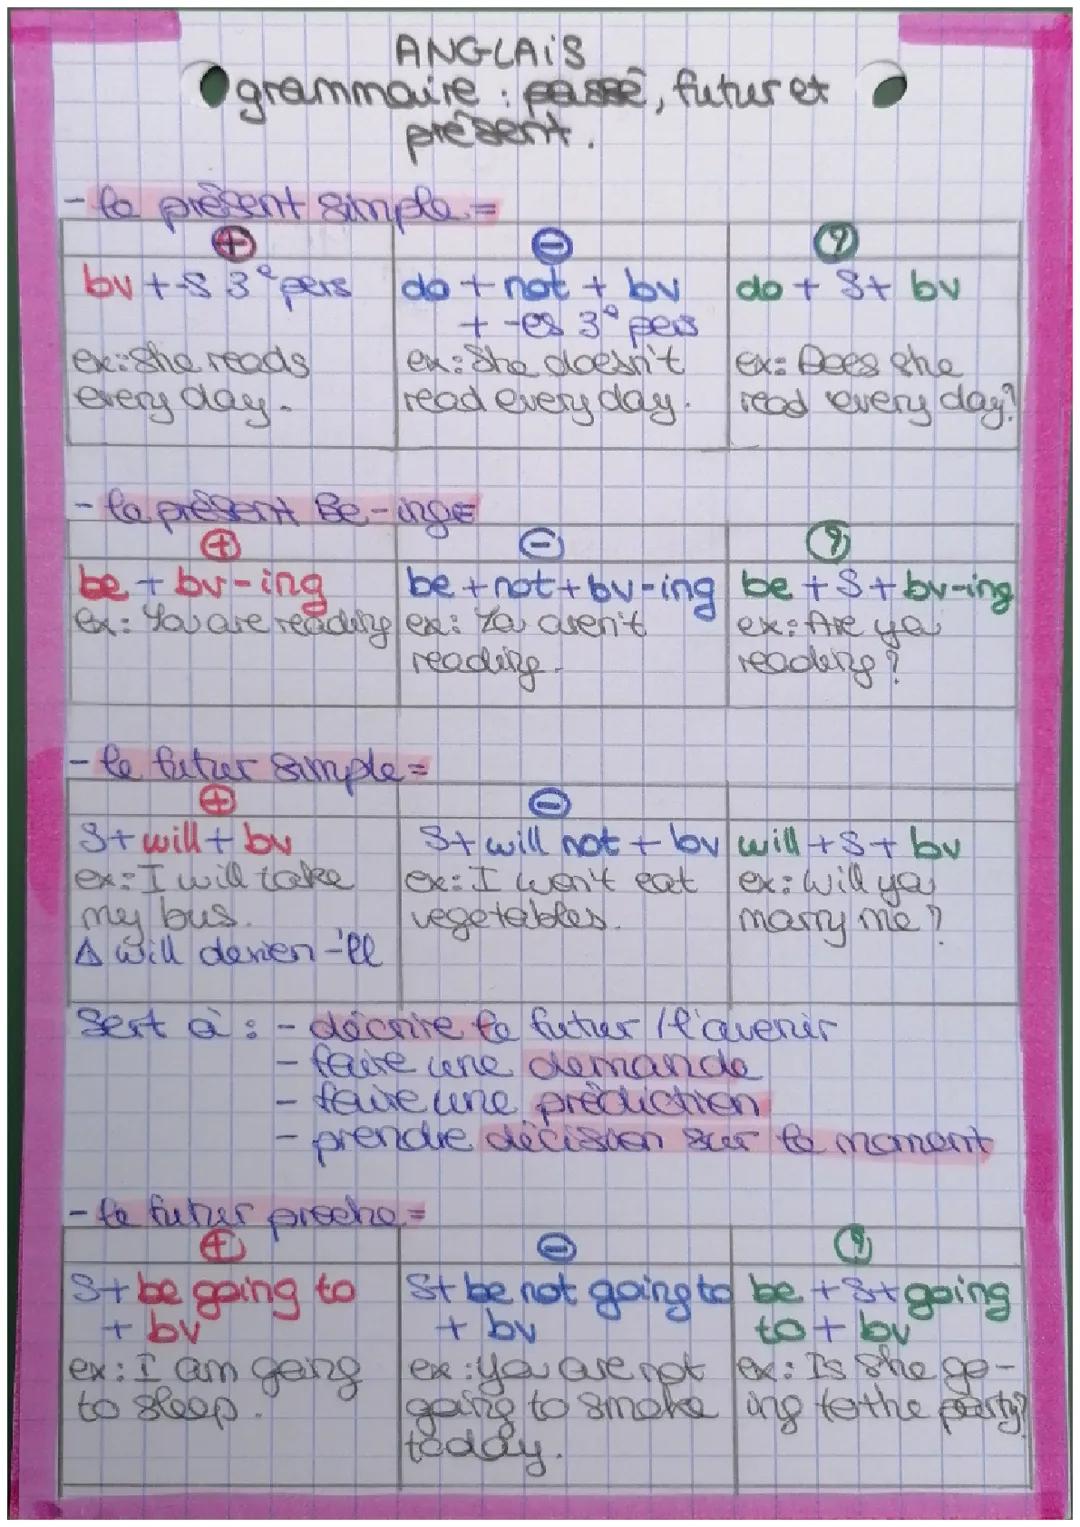 ANGLAIS
grammaire : passé, futur et
présent.
- le présent simple =
+ - ?
bv + -s 3e pers
do + not + bv
+ -es 3e pers
do + S + bv
ex: She reads
every day.
ex: She doesn't
read every day.
ex: Does she
read every day?
- le présent Be-ing =
+ - ?
be + bv-ing
ex: You are reading
be + not + bv-ing
ex: You aren't
reading.
be + S + bv-ing
ex: Are you
reading?
- le futur simple =
+ -
S + will + bv
ex: I will take
my bus.
Δ will devien -'ll
S + will not + bv
ex: I won't eat
vegetables.
will + S + bv
ex: Will you
marry me?
Sert à : - décrire le futur / l'avenir
- faire une demande
- faire une prédiction
- prendre décision sur le moment
- le futur proche =
+ - ?
S + be going to
+ bv
ex: I am going
to sleep.
S + be not going to
+ bv
ex: you are not
going to smoke
today.
be + S + going
to + bv
ex: Is she go-
ing to the party?